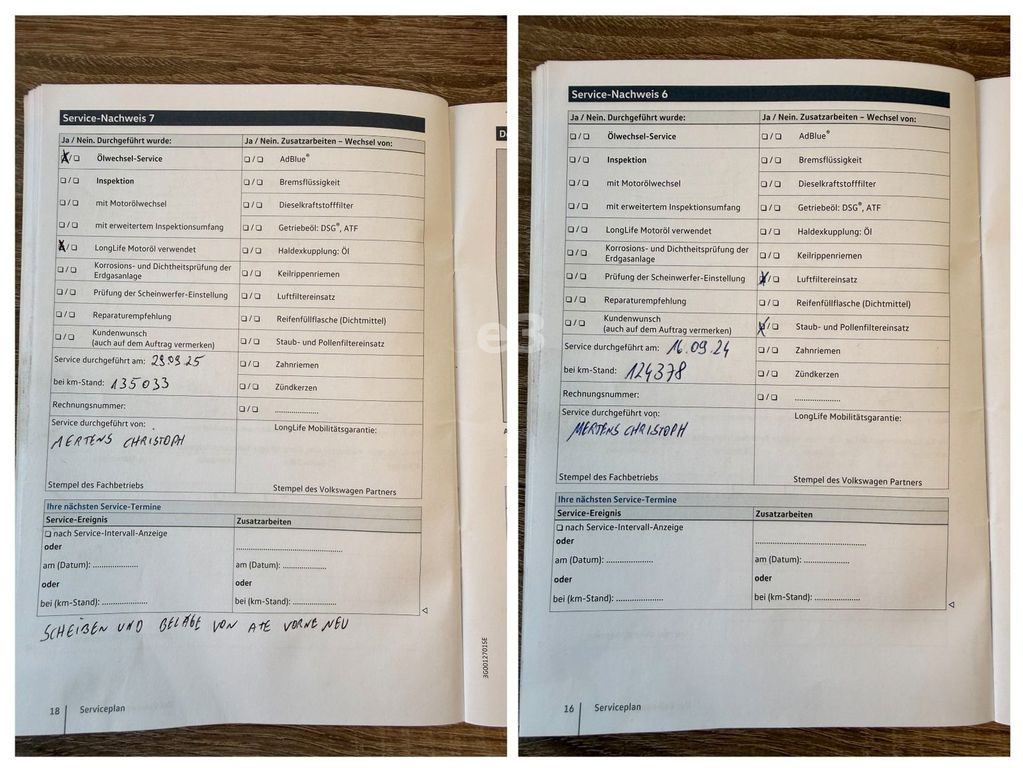 Service-Nachweis 7
Ja / Nein. Durchgeführt wurde:
Ja / Nein. Zusatzarbeiten – Wechsel von:
X/☐ Ölwechsel-Service
☐/☐ AdBlue®
☐/☐ Inspektion
☐/☐ Bremsflüssigkeit
☐/☐ mit Motorölwechsel
☐/☐ Dieselkraftstofffilter
☐/☐ mit erweitertem Inspektionsumfang
☐/☐ Getriebeöl: DSG®, ATF
X/☐ LongLife Motoröl verwendet
☐/☐ Haldexkupplung: Öl
☐/☐ Korrosions- und Dichtheitsprüfung der
Erdgasanlage
☐/☐ Keilrippenriemen
☐/☐ Prüfung der Scheinwerfer-Einstellung
☐/☐ Luftfiltereinsatz
☐/☐ Reparaturempfehlung
☐/☐ Reifenfüllflasche (Dichtmittel)
☐/☐ Kundenwunsch
(auch auf dem Auftrag vermerken)
☐/☐ Staub- und Pollenfiltereinsatz
Service durchgeführt am: 290925
☐/☐ Zahnriemen
bei km-Stand: 135033
☐/☐ Zündkerzen
Rechnungsnummer:
☐/☐ ....................
Service durchgeführt von:
MERTENS CHRISTOPH
LongLife Mobilitätsgarantie:
Stempel des Fachbetriebs
Stempel des Volkswagen Partners
Ihre nächsten Service-Termine
Service-Ereignis
Zusatzarbeiten
☐ nach Service-Intervall-Anzeige
oder
..........................................
am (Datum): ..................
am (Datum): .................
oder
bei (km-Stand): ..................
bei (km-Stand): ..................
SCHEIBEN UND BELÄGE VON ATE VORNE NEU
18 Serviceplan
3G0012701SE
e3
Service-Nachweis 6
Ja / Nein. Durchgeführt wurde:
Ja / Nein. Zusatzarbeiten – Wechsel von:
☐/☐ Ölwechsel-Service
☐/☐ AdBlue®
☐/☐ Inspektion
☐/☐ Bremsflüssigkeit
☐/☐ mit Motorölwechsel
☐/☐ Dieselkraftstofffilter
☐/☐ mit erweitertem Inspektionsumfang
☐/☐ Getriebeöl: DSG®, ATF
☐/☐ LongLife Motoröl verwendet
☐/☐ Haldexkupplung: Öl
☐/☐ Korrosions- und Dichtheitsprüfung der
Erdgasanlage
☐/☐ Keilrippenriemen
☐/☐ Prüfung der Scheinwerfer-Einstellung
X/☐ Luftfiltereinsatz
☐/☐ Reparaturempfehlung
☐/☐ Reifenfüllflasche (Dichtmittel)
☐/☐ Kundenwunsch
(auch auf dem Auftrag vermerken)
X/☐ Staub- und Pollenfiltereinsatz
Service durchgeführt am: 16.09.24
☐/☐ Zahnriemen
bei km-Stand: 124378
☐/☐ Zündkerzen
Rechnungsnummer:
☐/☐ ....................
Service durchgeführt von:
MERTENS CHRISTOPH
LongLife Mobilitätsgarantie:
Stempel des Fachbetriebs
Stempel des Volkswagen Partners
Ihre nächsten Service-Termine
Service-Ereignis
Zusatzarbeiten
☐ nach Service-Intervall-Anzeige
oder
..........................................
am (Datum): ..................
am (Datum): ..................
oder
bei (km-Stand): ..................
bei (km-Stand): ..................
16 Serviceplan